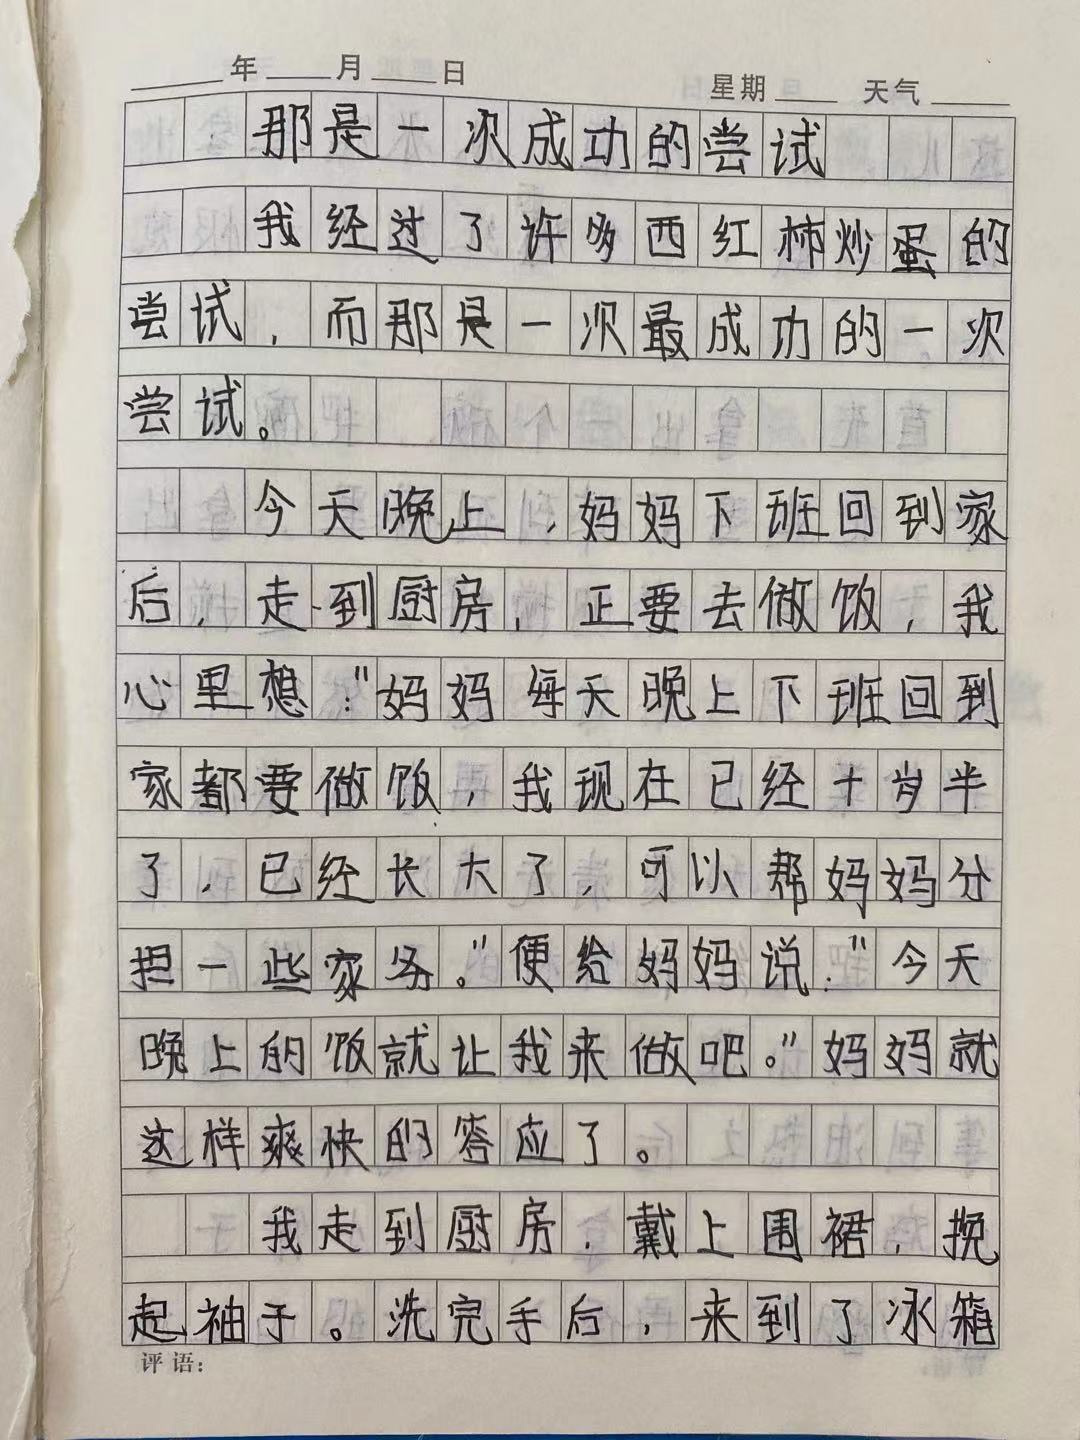 ____年____月____日 星期____ 天气____
那是一次成功的尝试
我经过了许多西红柿炒蛋的
尝试，而那是一次最成功的一次
尝试。
今天晚上，妈妈下班回到家
后，走到厨房，正要去做饭，我
心里想："妈妈每天晚上下班回到
家都要做饭，我现在已经十岁半
了，已经长大了，可以帮妈妈分
担一些家务。"便给妈妈说："今天
晚上的饭就让我来做吧。"妈妈就
这样爽快的答应了。
我走到厨房，戴上围裙，挽
起袖于。洗完手后，来到了冰箱
评语：